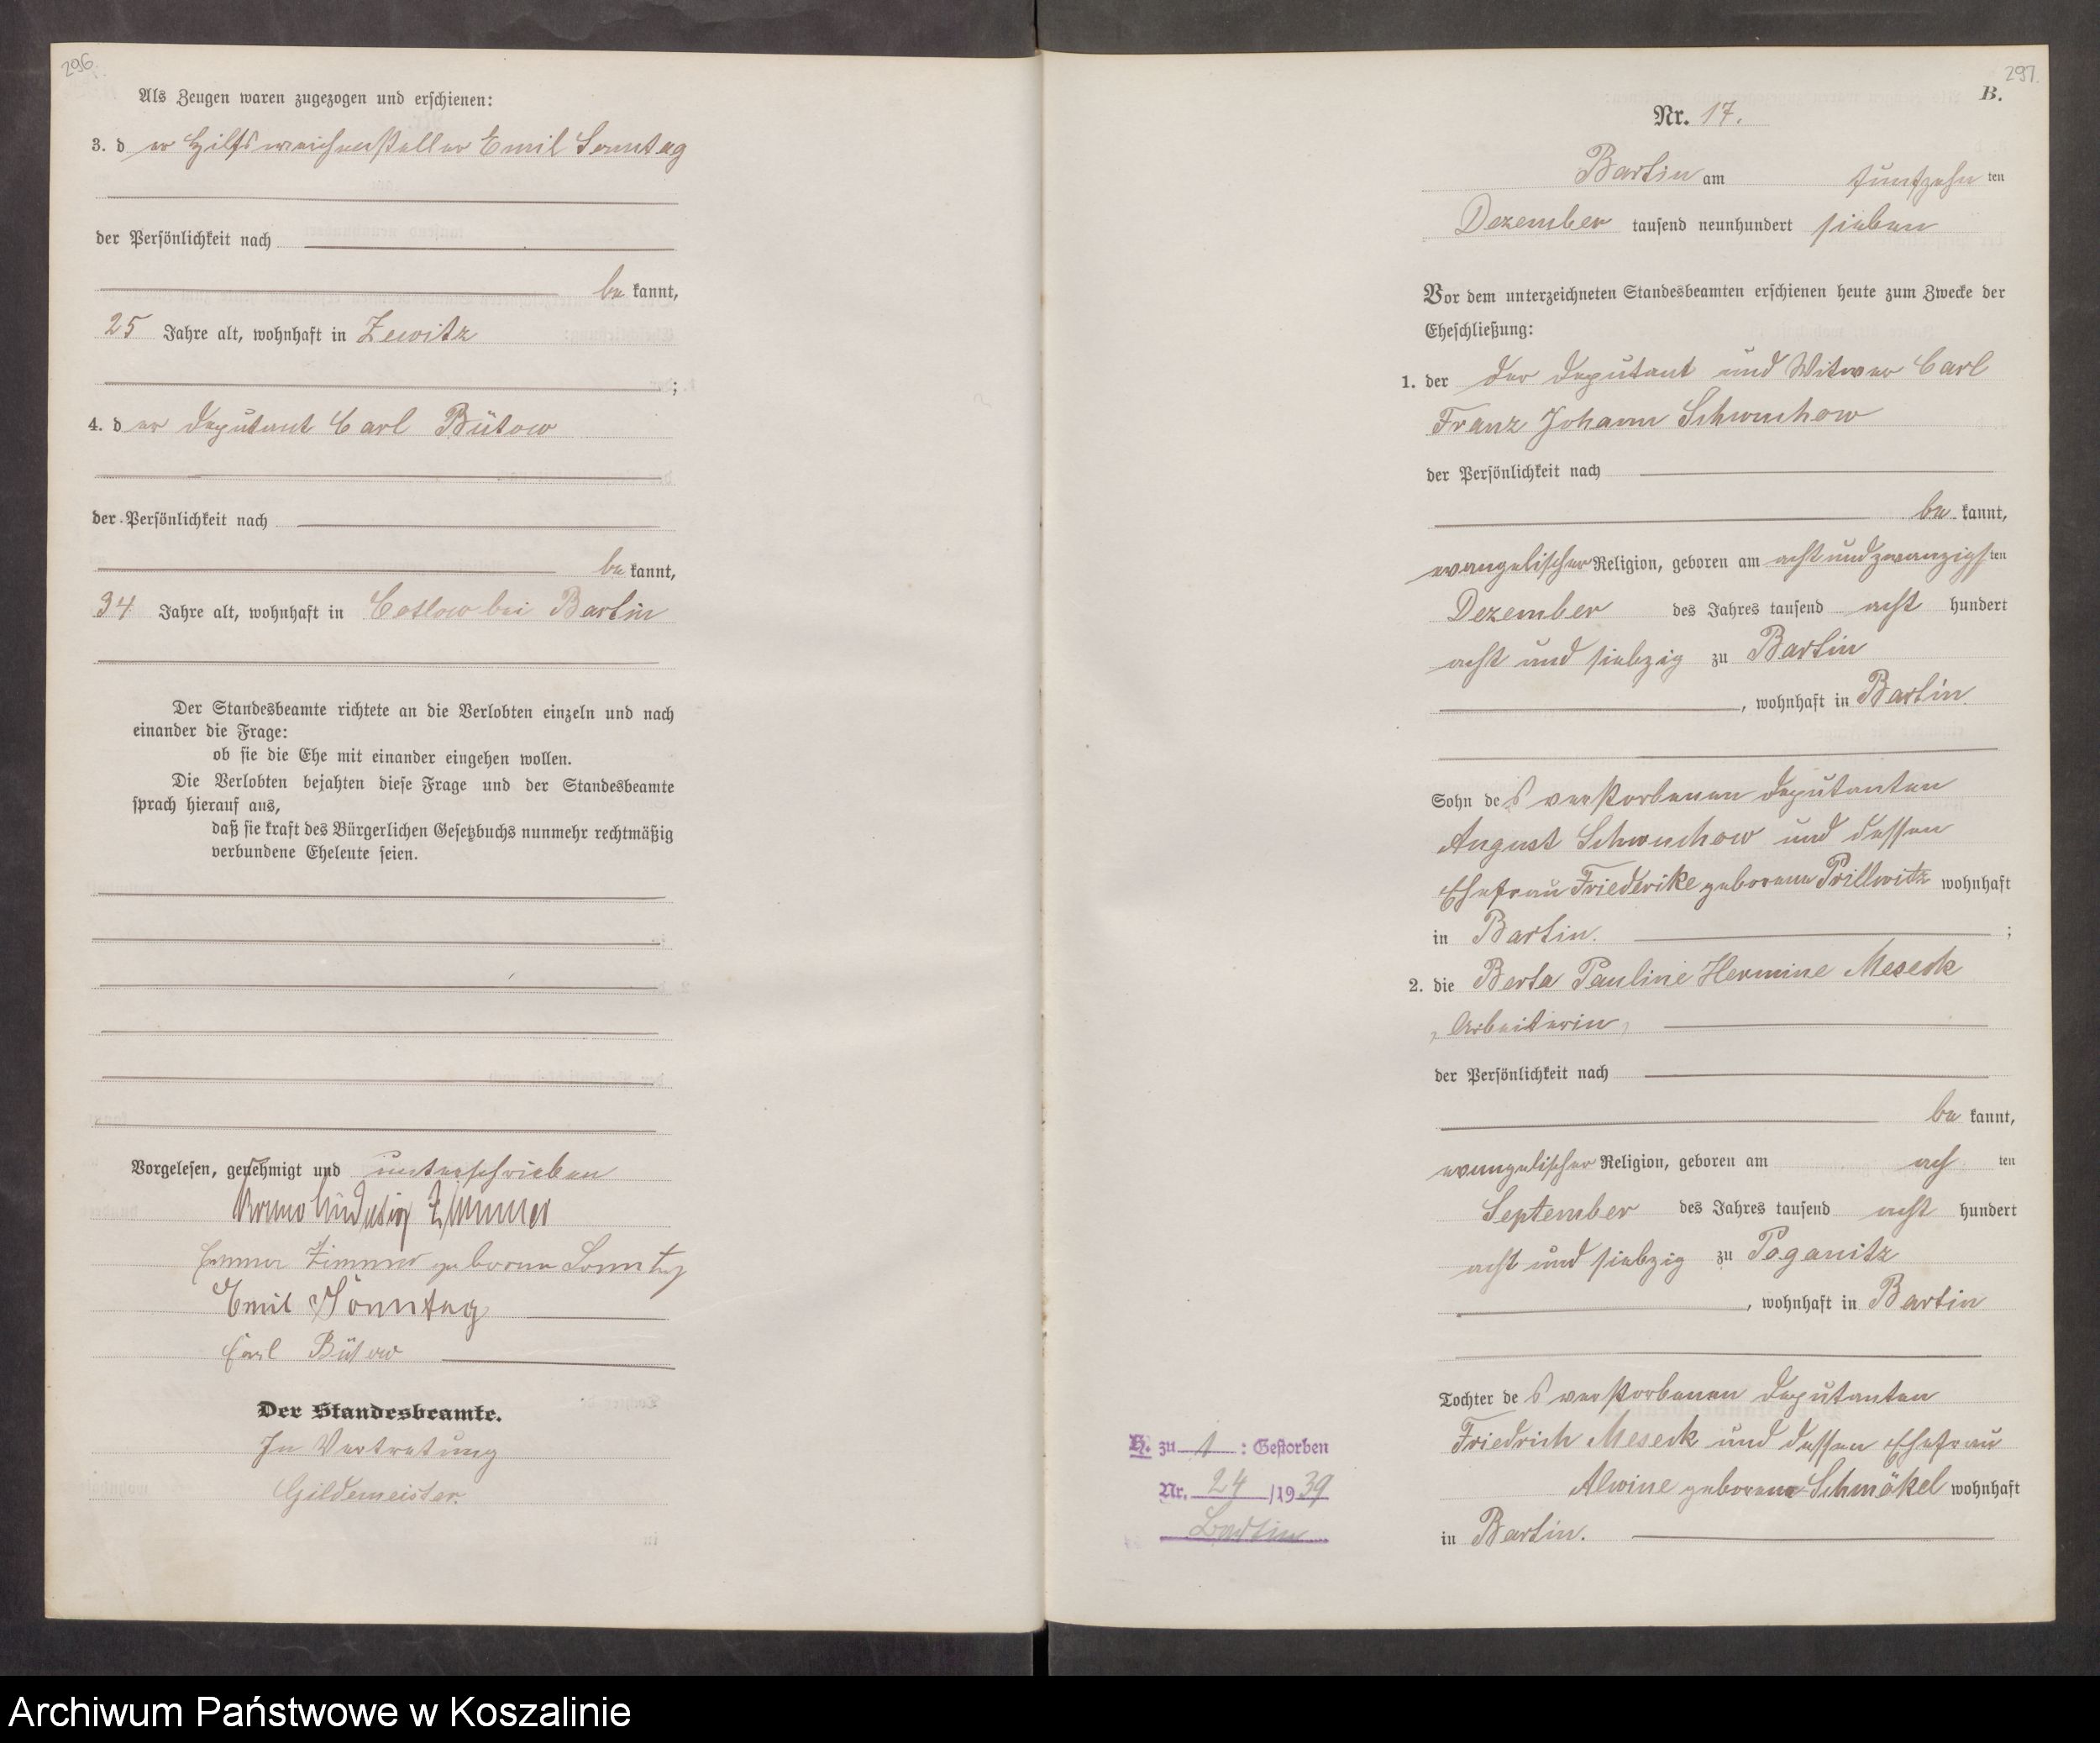 296.
Als Zeugen waren zugezogen und erschienen:
3. der Hilfsweichensteller Emil Sonntag
der Persönlichkeit nach
be kannt,
25 Jahre alt, wohnhaft in Zewitz
;
4. der Deputant Carl Bütow
der Persönlichkeit nach
be kannt,
34 Jahre alt, wohnhaft in Coslow bei Bartin
Der Standesbeamte richtete an die Verlobten einzeln und nach
einander die Frage:
ob sie die Ehe mit einander eingehen wollen.
Die Verlobten bejahten diese Frage und der Standesbeamte
sprach hierauf aus,
daß sie kraft des Bürgerlichen Gesetzbuchs nunmehr rechtmäßig
verbundene Eheleute seien.
Vorgelesen, genehmigt und unterschrieben
Zimmer
Zimmer geborene Sonntag
Emil Sonntag
Carl Bütow
Der Standesbeamte.
In Vertretung
Gildemeister.
297.
B.
Nr. 17.
Bartin am fünfzehn ten
Dezember tausend neunhundert sieben
Vor dem unterzeichneten Standesbeamten erschienen heute zum Zwecke der
Eheschließung:
1. der der Deputant und Witwer Carl
Franz Johann Schwuchow
der Persönlichkeit nach
be kannt,
evangelischer Religion, geboren am acht und zwanzigsten
Dezember des Jahres tausend acht hundert
acht und siebzig zu Bartin
, wohnhaft in Bartin.
Sohn des verstorbenen Deputanten
August Schwuchow und dessen
Ehefrau Friederike geborene Prillwitz wohnhaft
in Bartin. ;
2. die Berta Pauline Hermine Meseck
, Arbeiterin,
der Persönlichkeit nach
be kannt,
evangelischer Religion, geboren am ach ten
September des Jahres tausend acht hundert
acht und siebzig zu Poganitz
, wohnhaft in Bartin
Tochter des verstorbenen Deputanten
Friedrich Meseck und dessen Ehefrau
Alwine geborene Schmökel wohnhaft
in Bartin.
H. zu 1 : Gestorben
Nr. 24 /1939
Bartin
Archiwum Państwowe w Koszalinie